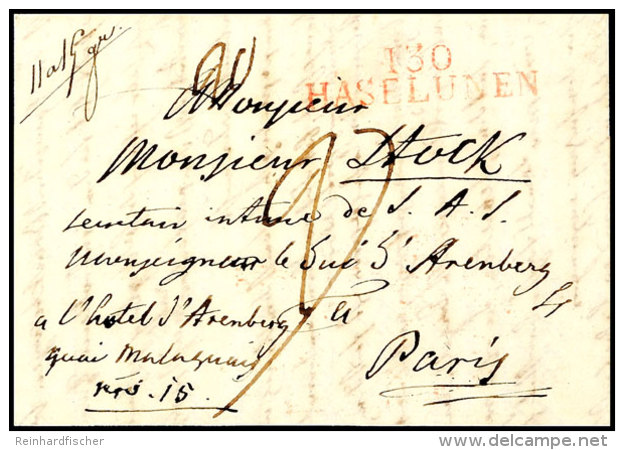 130
HASELUNEN
Monsieur
Monsieur Stock
secretair intime de S. A. S.
Monseigneur le Duc D'Arenberg
a l'hotel d'Arenberg a
quai Malaquais Paris
nro. 15.
Reinhardfischer delcampe.net